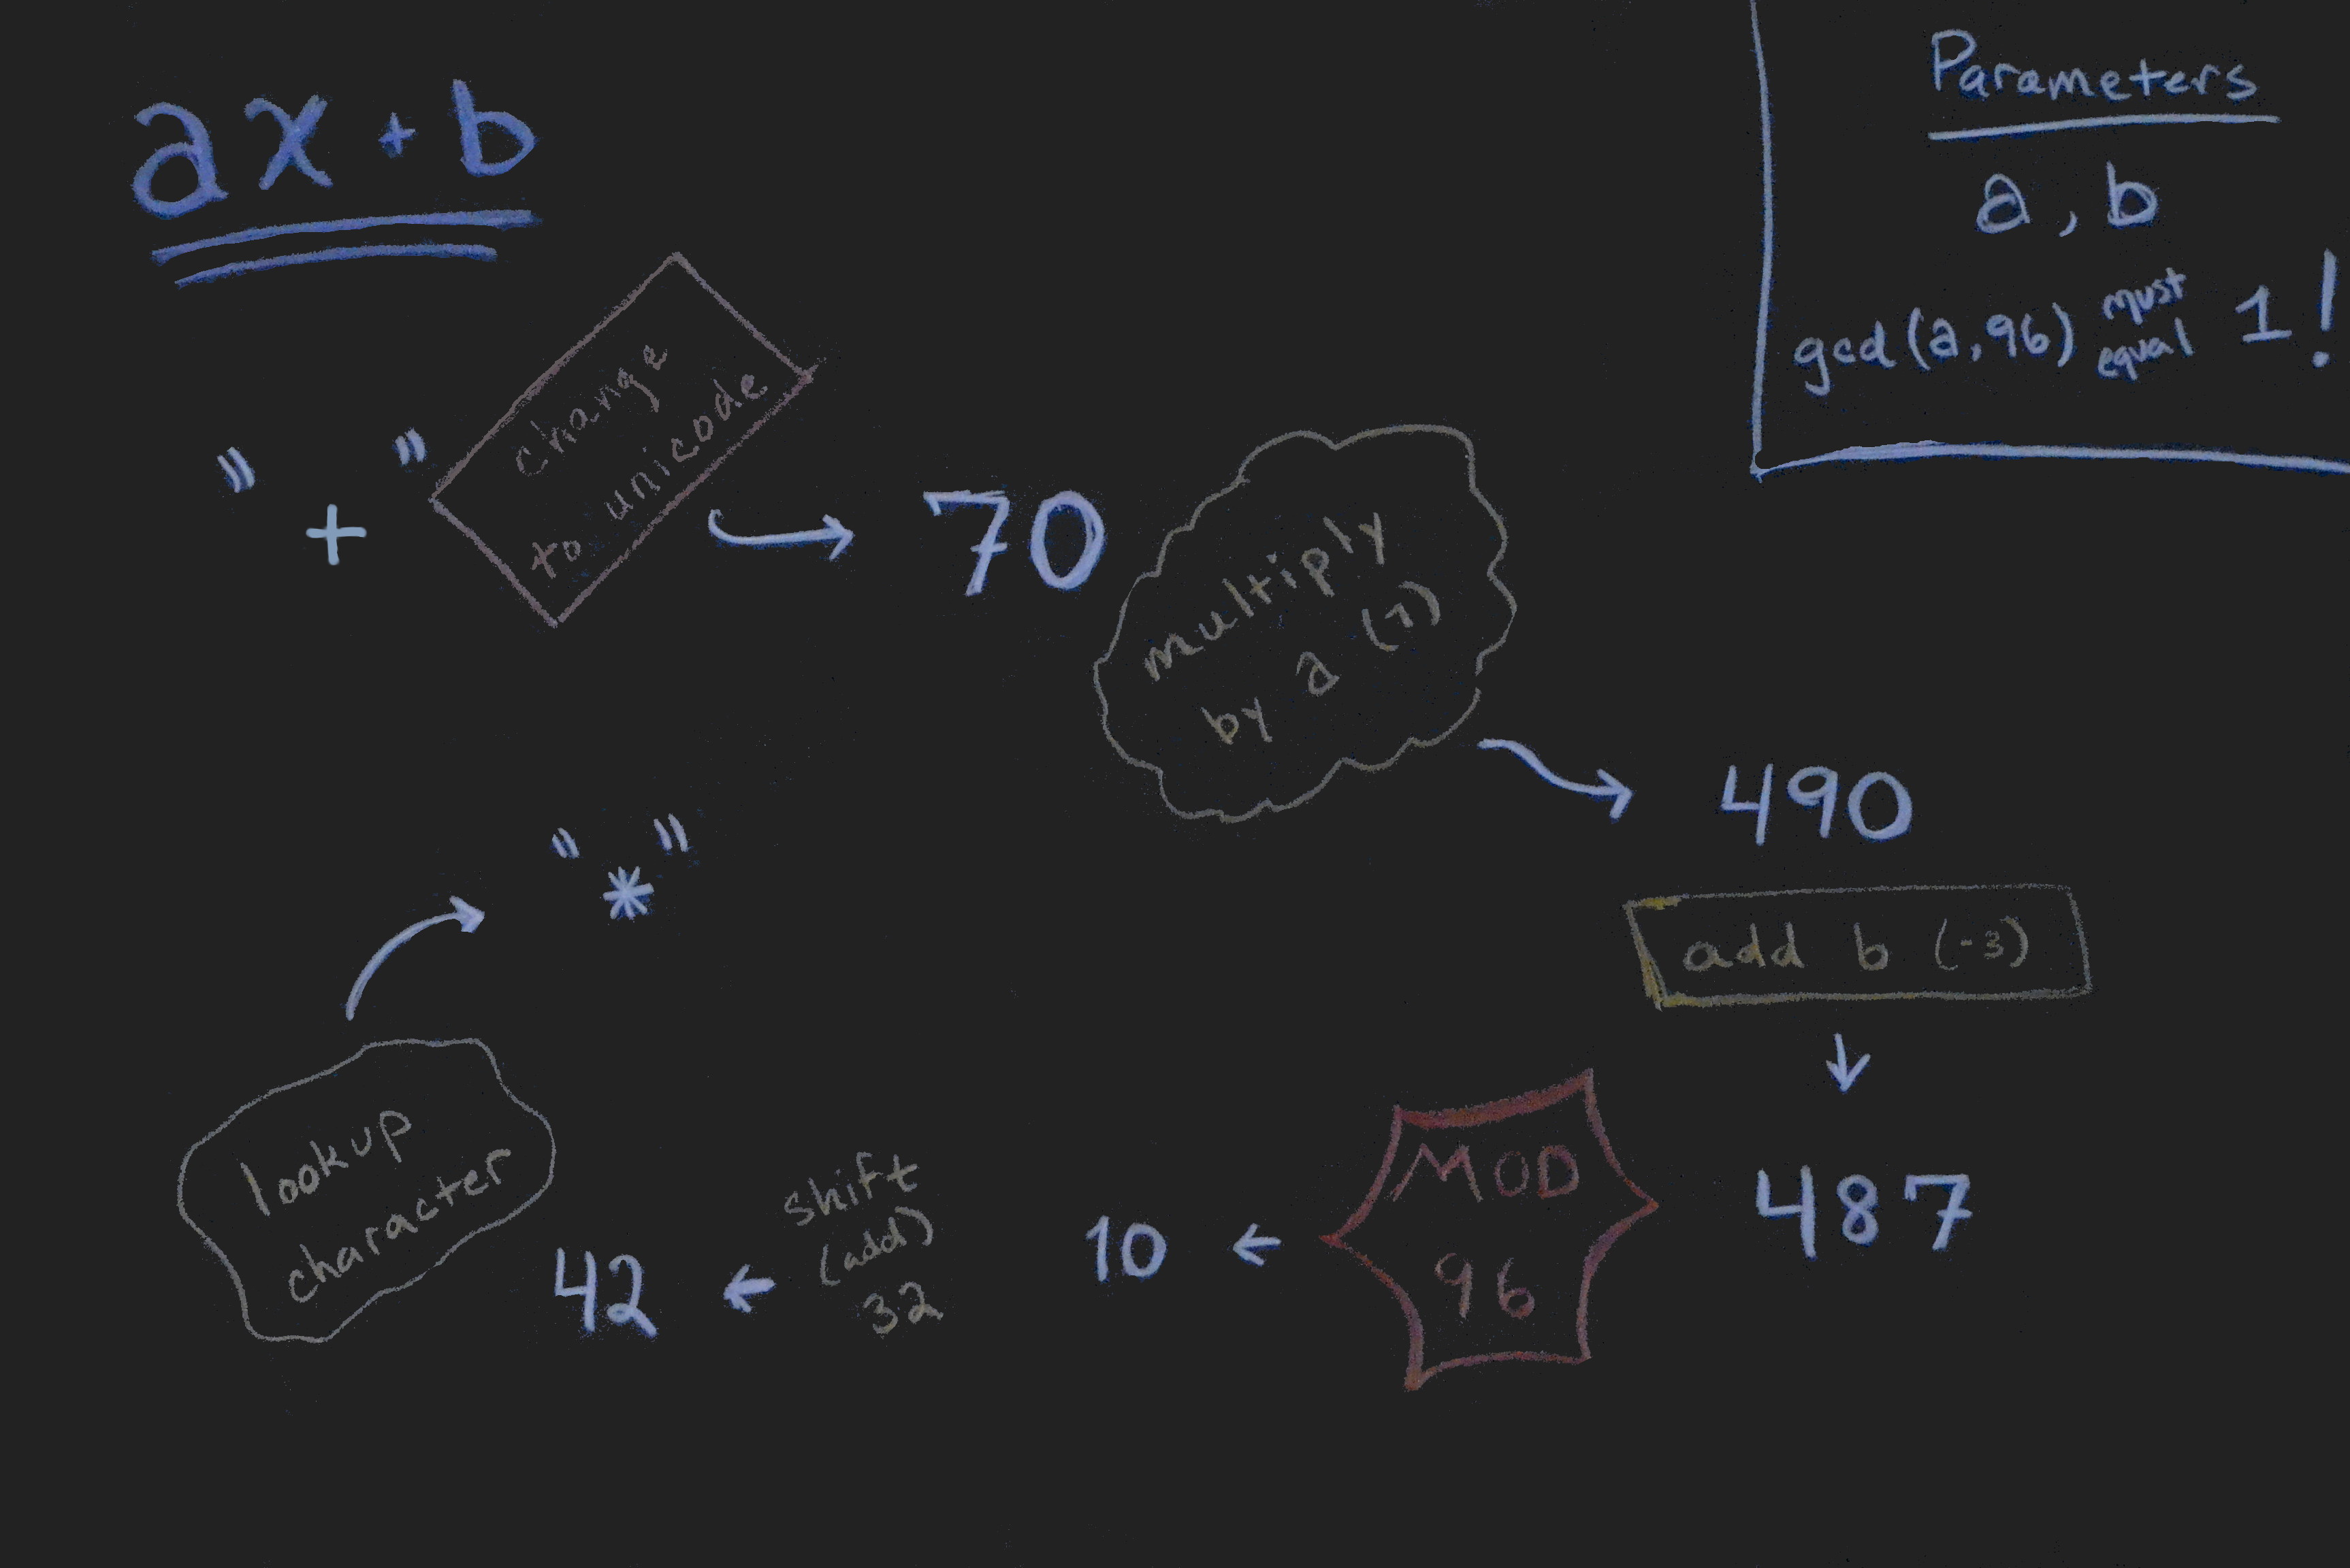 ax + b
Parameters
a, b
gcd(a,96) must equal 1!
"+"
change
to unicode
70
multiply
by a (7)
490
add b (-3)
487
MOD
96
10
shift
(add)
32
42
lookup
character
"*"